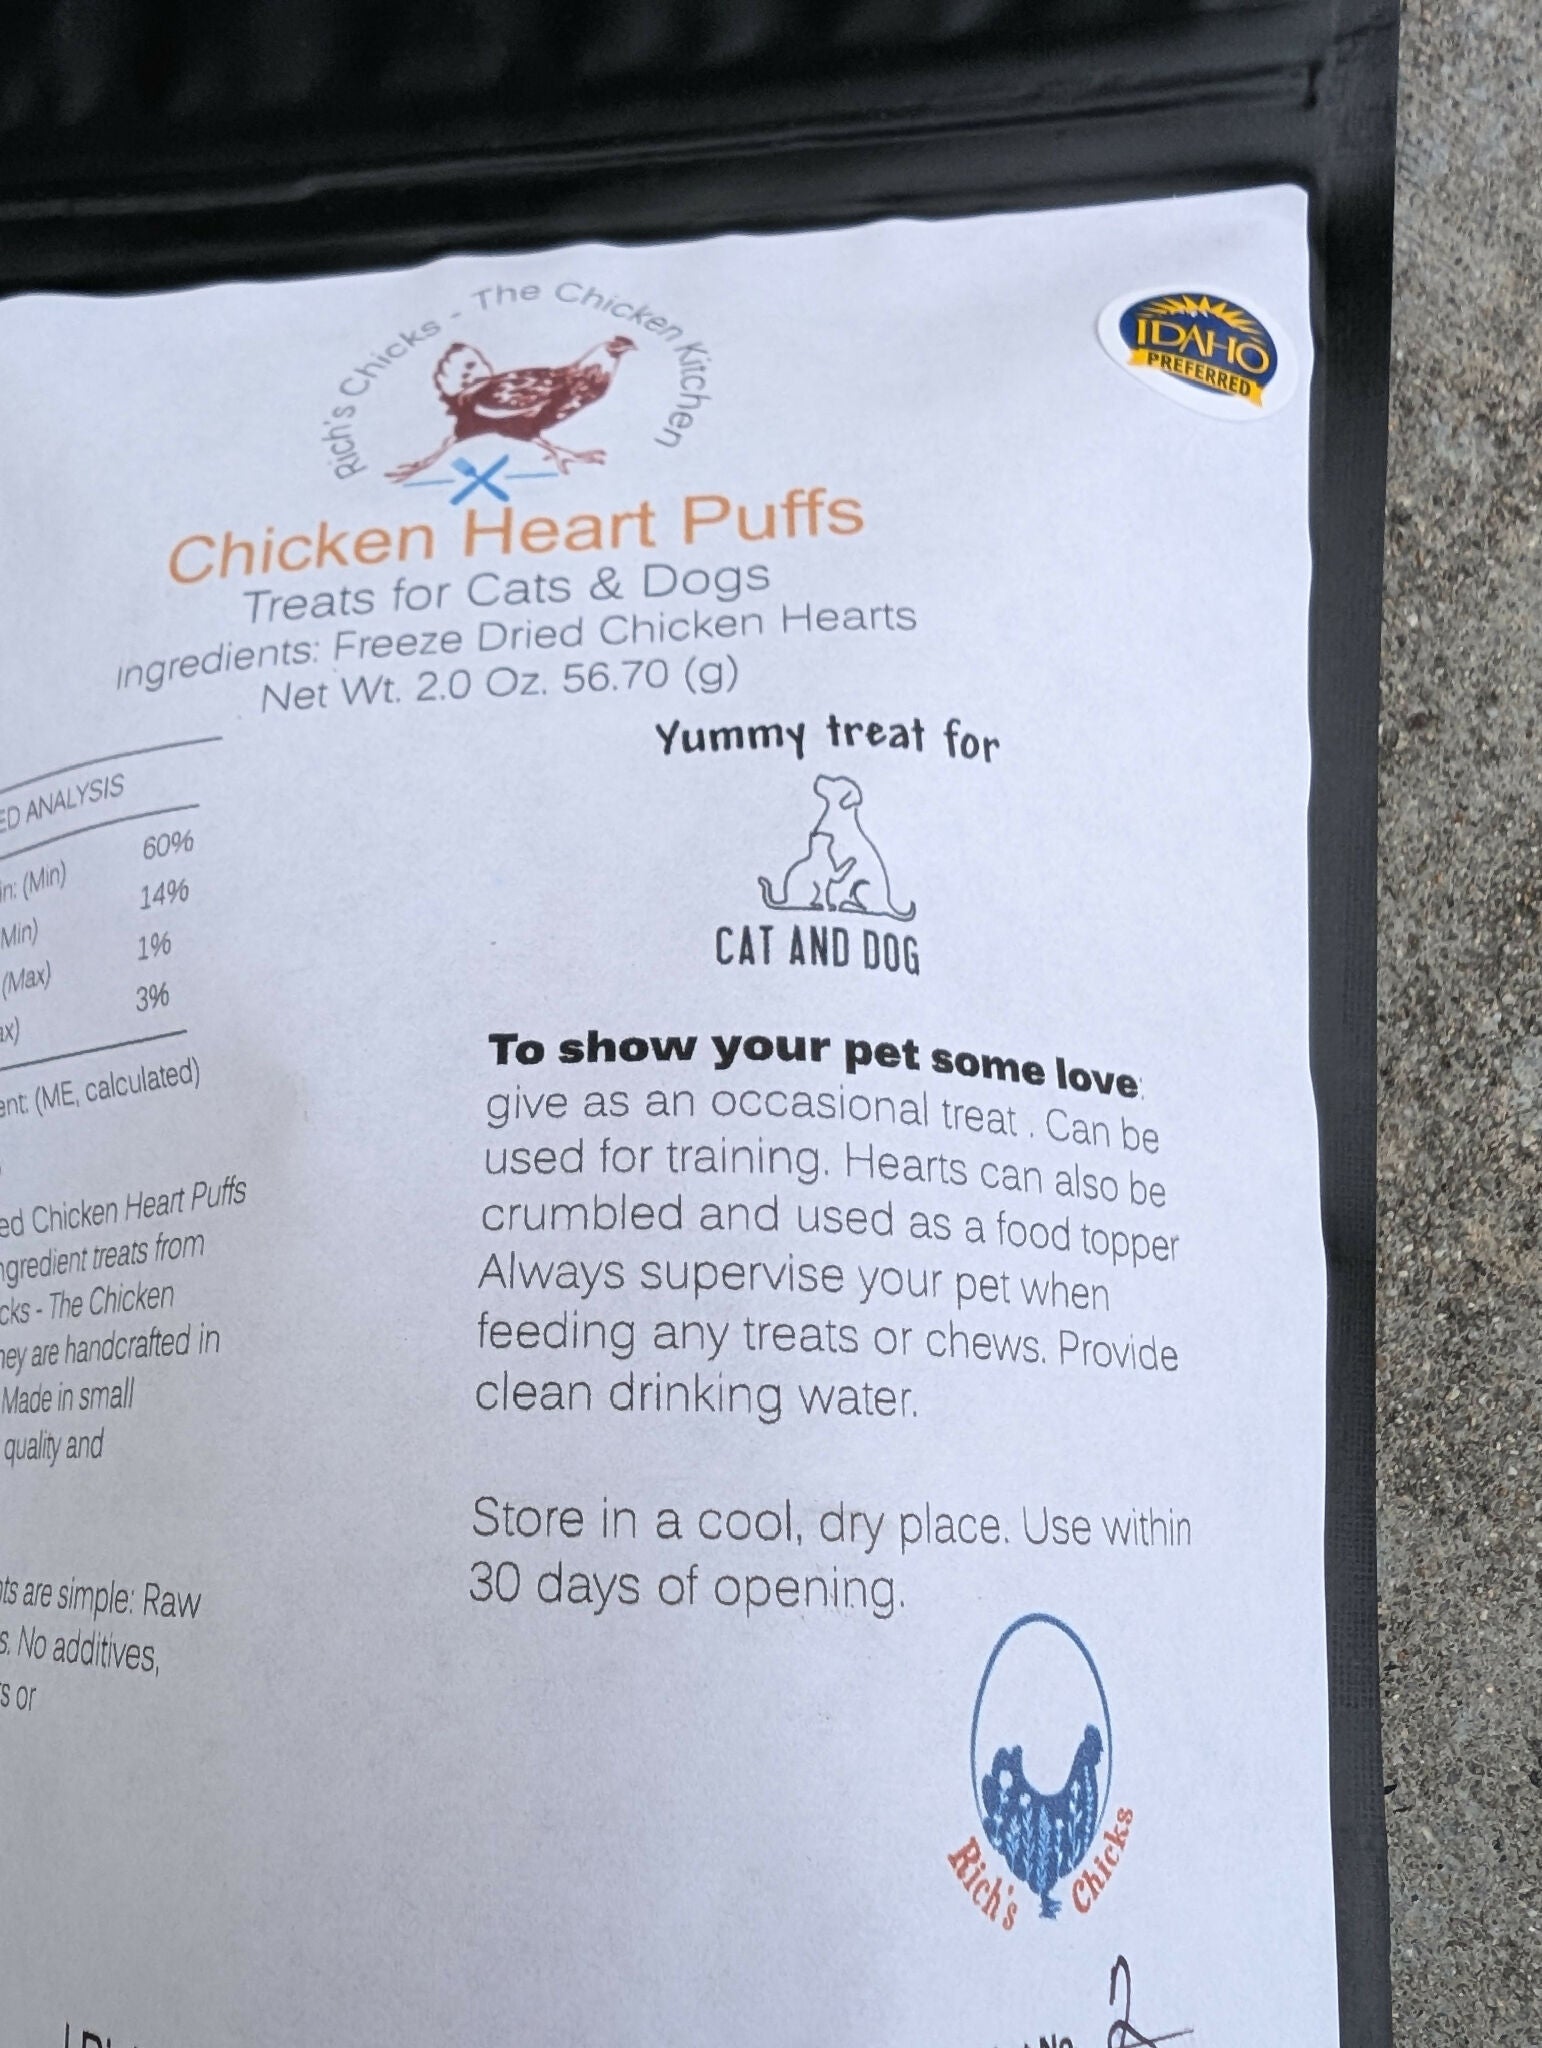 Rich's Chicks - The Chicken Kitchen
IDAHO
PREFERRED
Chicken Heart Puffs
Treats for Cats & Dogs
Ingredients: Freeze Dried Chicken Hearts
Net Wt. 2.0 Oz. 56.70 (g)
ANALYSIS
(Min) 60%
Min) 14%
(Max) 1%
3%
(ME, calculated)
Chicken Heart Puffs
treats from
- The Chicken
are handcrafted in
Made in small
quality and
are simple: Raw
No additives,
or
Yummy treat for
CAT AND DOG
To show your pet some love:
give as an occasional treat . Can be
used for training. Hearts can also be
crumbled and used as a food topper
Always supervise your pet when
feeding any treats or chews. Provide
clean drinking water.
Store in a cool, dry place. Use within
30 days of opening.
Rich's Chicks
No 2